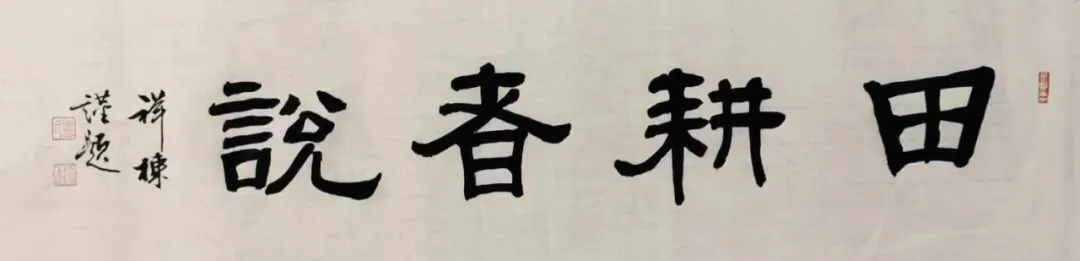 田耕者說
祥棟
謹題